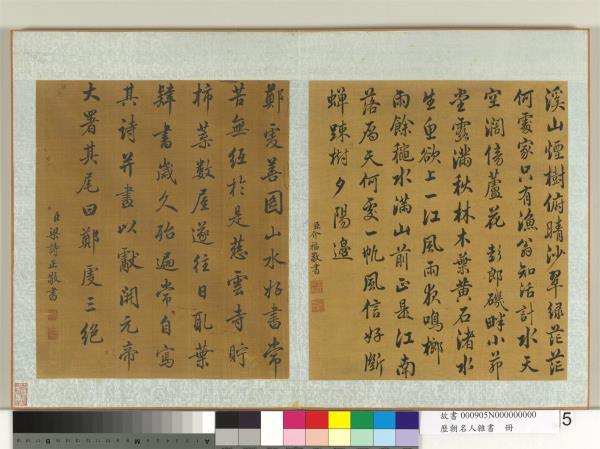 溪山煙樹俯晴沙翠綠茫茫
何處家只有漁翁知活計水天
空濶傍蘆花 彭郎磯畔小茆
堂露滿秋林木葉黃石渚水
生魚欲上一江風雨夜鳴榔
雨餘穐水滿山前正是江南
落雁天何處一帆風信好斷
蟬踈樹夕陽邊
臣介福敬書
鄭虔善圖山水好書常
苦無紙於是慈雲寺貯
柿葉數屋遂往日取葉
肄書歲久殆遍常自寫
其詩并畫以獻開元帝
大署其尾曰鄭虔三絕
臣梁詩正敬書
故書 000905N000000000
歷朝名人雜書 冊
5